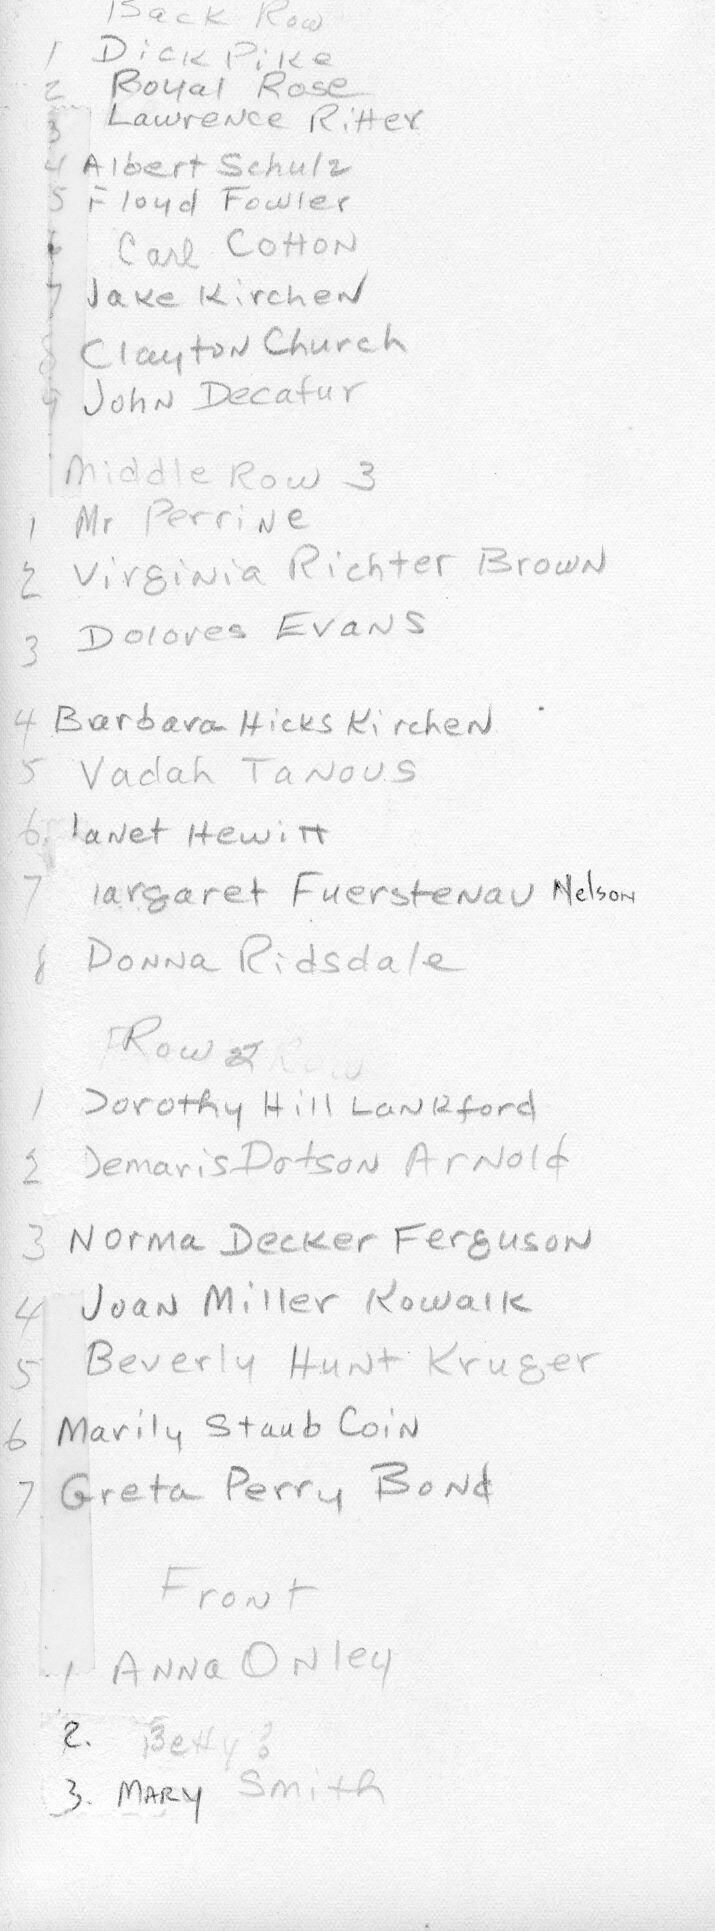 Back Row
1 Dick Pike
2 Royal Rose
3 Lawrence Ritter
4 Albert Schulz
5 Floyd Fowler
6 Carl Cotton
7 Jake Kirchen
8 Clayton Church
9 John Decatur
Middle Row 3
1 Mr Perrine
2 Virginia Richter Brown
3 Dolores Evans
4 Barbara Hicks Kirchen
5 Vadah Tanous
6. Janet Hewitt
7 Margaret Fuerstenau Nelson
8 Donna Ridsdale
Row 2
1 Dorothy Hill Lankford
2 Demaris Dotson Arnold
3 Norma Decker Ferguson
4 Joan Miller Kowalk
5 Beverly Hunt Kruger
6 Marily Staub Coin
7 Greta Perry Bond
Front
1 Anna Onley
2. Betty ?
3. Mary Smith